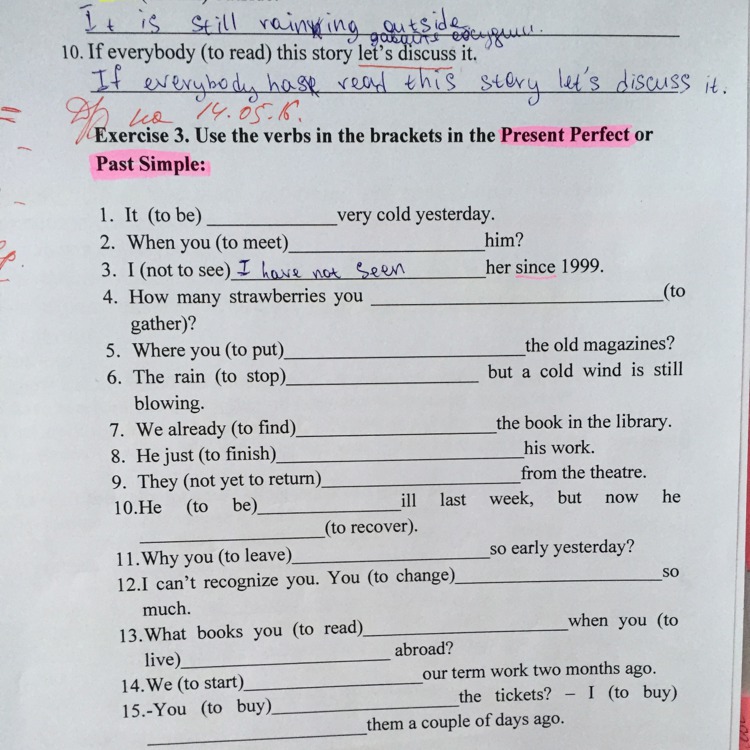 It is still raining outside
10. If everybody (to read) this story let's discuss it.
If everybody has read this story let's discuss it.
на 14.05.18.
Exercise 3. Use the verbs in the brackets in the Present Perfect or
Past Simple:
1. It (to be) ____________very cold yesterday.
2. When you (to meet)____________________him?
3. I (not to see) I have not seen ________her since 1999.
4. How many strawberries you ______________________________(to
gather)?
5. Where you (to put)_________________________the old magazines?
6. The rain (to stop)____________________ but a cold wind is still
blowing.
7. We already (to find)____________________the book in the library.
8. He just (to finish)_________________________his work.
9. They (not yet to return)____________________from the theatre.
10.He (to be)______________ill last week, but now he
___________________(to recover).
11.Why you (to leave)____________________so early yesterday?
12.I can't recognize you. You (to change)_____________________so
much.
13.What books you (to read)____________________when you (to
live)_____________________ abroad?
14.We (to start)__________________our term work two months ago.
15.-You (to buy)___________________the tickets? – I (to buy)
______________________them a couple of days ago.